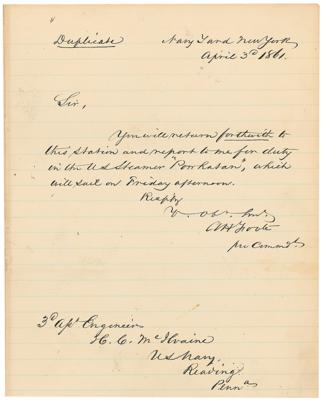 Duplicate
Navy Yard New York
April 3d 1861.
Sir,
You will return forthwith to
this Station and report to me for duty
in the US Steamer "Powhatan", which
will sail on Friday afternoon.
Respy
Yr. Obt. Svt.
AH Foote
3d Asst Engineer
H. C. McIlvaine
US Navy.
Reading.
Penna